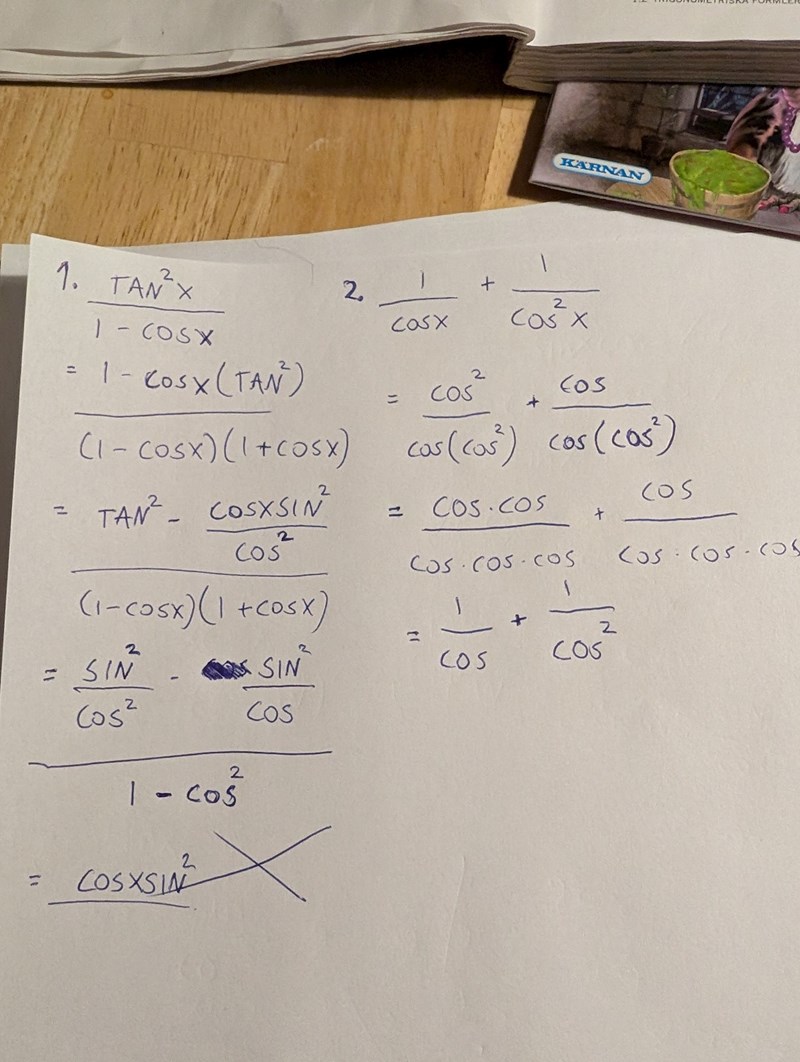 1.2 TRIGONOMETRISKA FORMLER
KÄRNAN
1. TAN²x
1 - cosx
= 1 - cosx(TAN²)
(1 - cosx)(1 + cosx)
= TAN² - cosxsin²
cos²
(1-cosx)(1+cosx)
= SIN² - SIN²
cos² cos
1 - cos²
= cosxsin²
2. 1 + 1
cosx cos²x
= cos² + cos
cos(cos²) cos(cos²)
= cos·cos + cos
cos·cos·cos cos·cos·cos
= 1 + 1
cos cos²